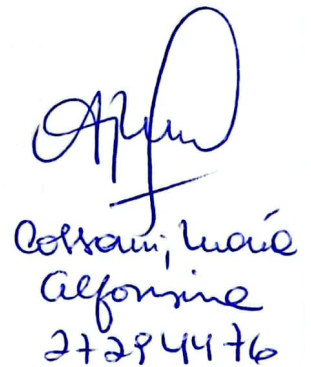 Cossani, María
Alfonsina
27294476